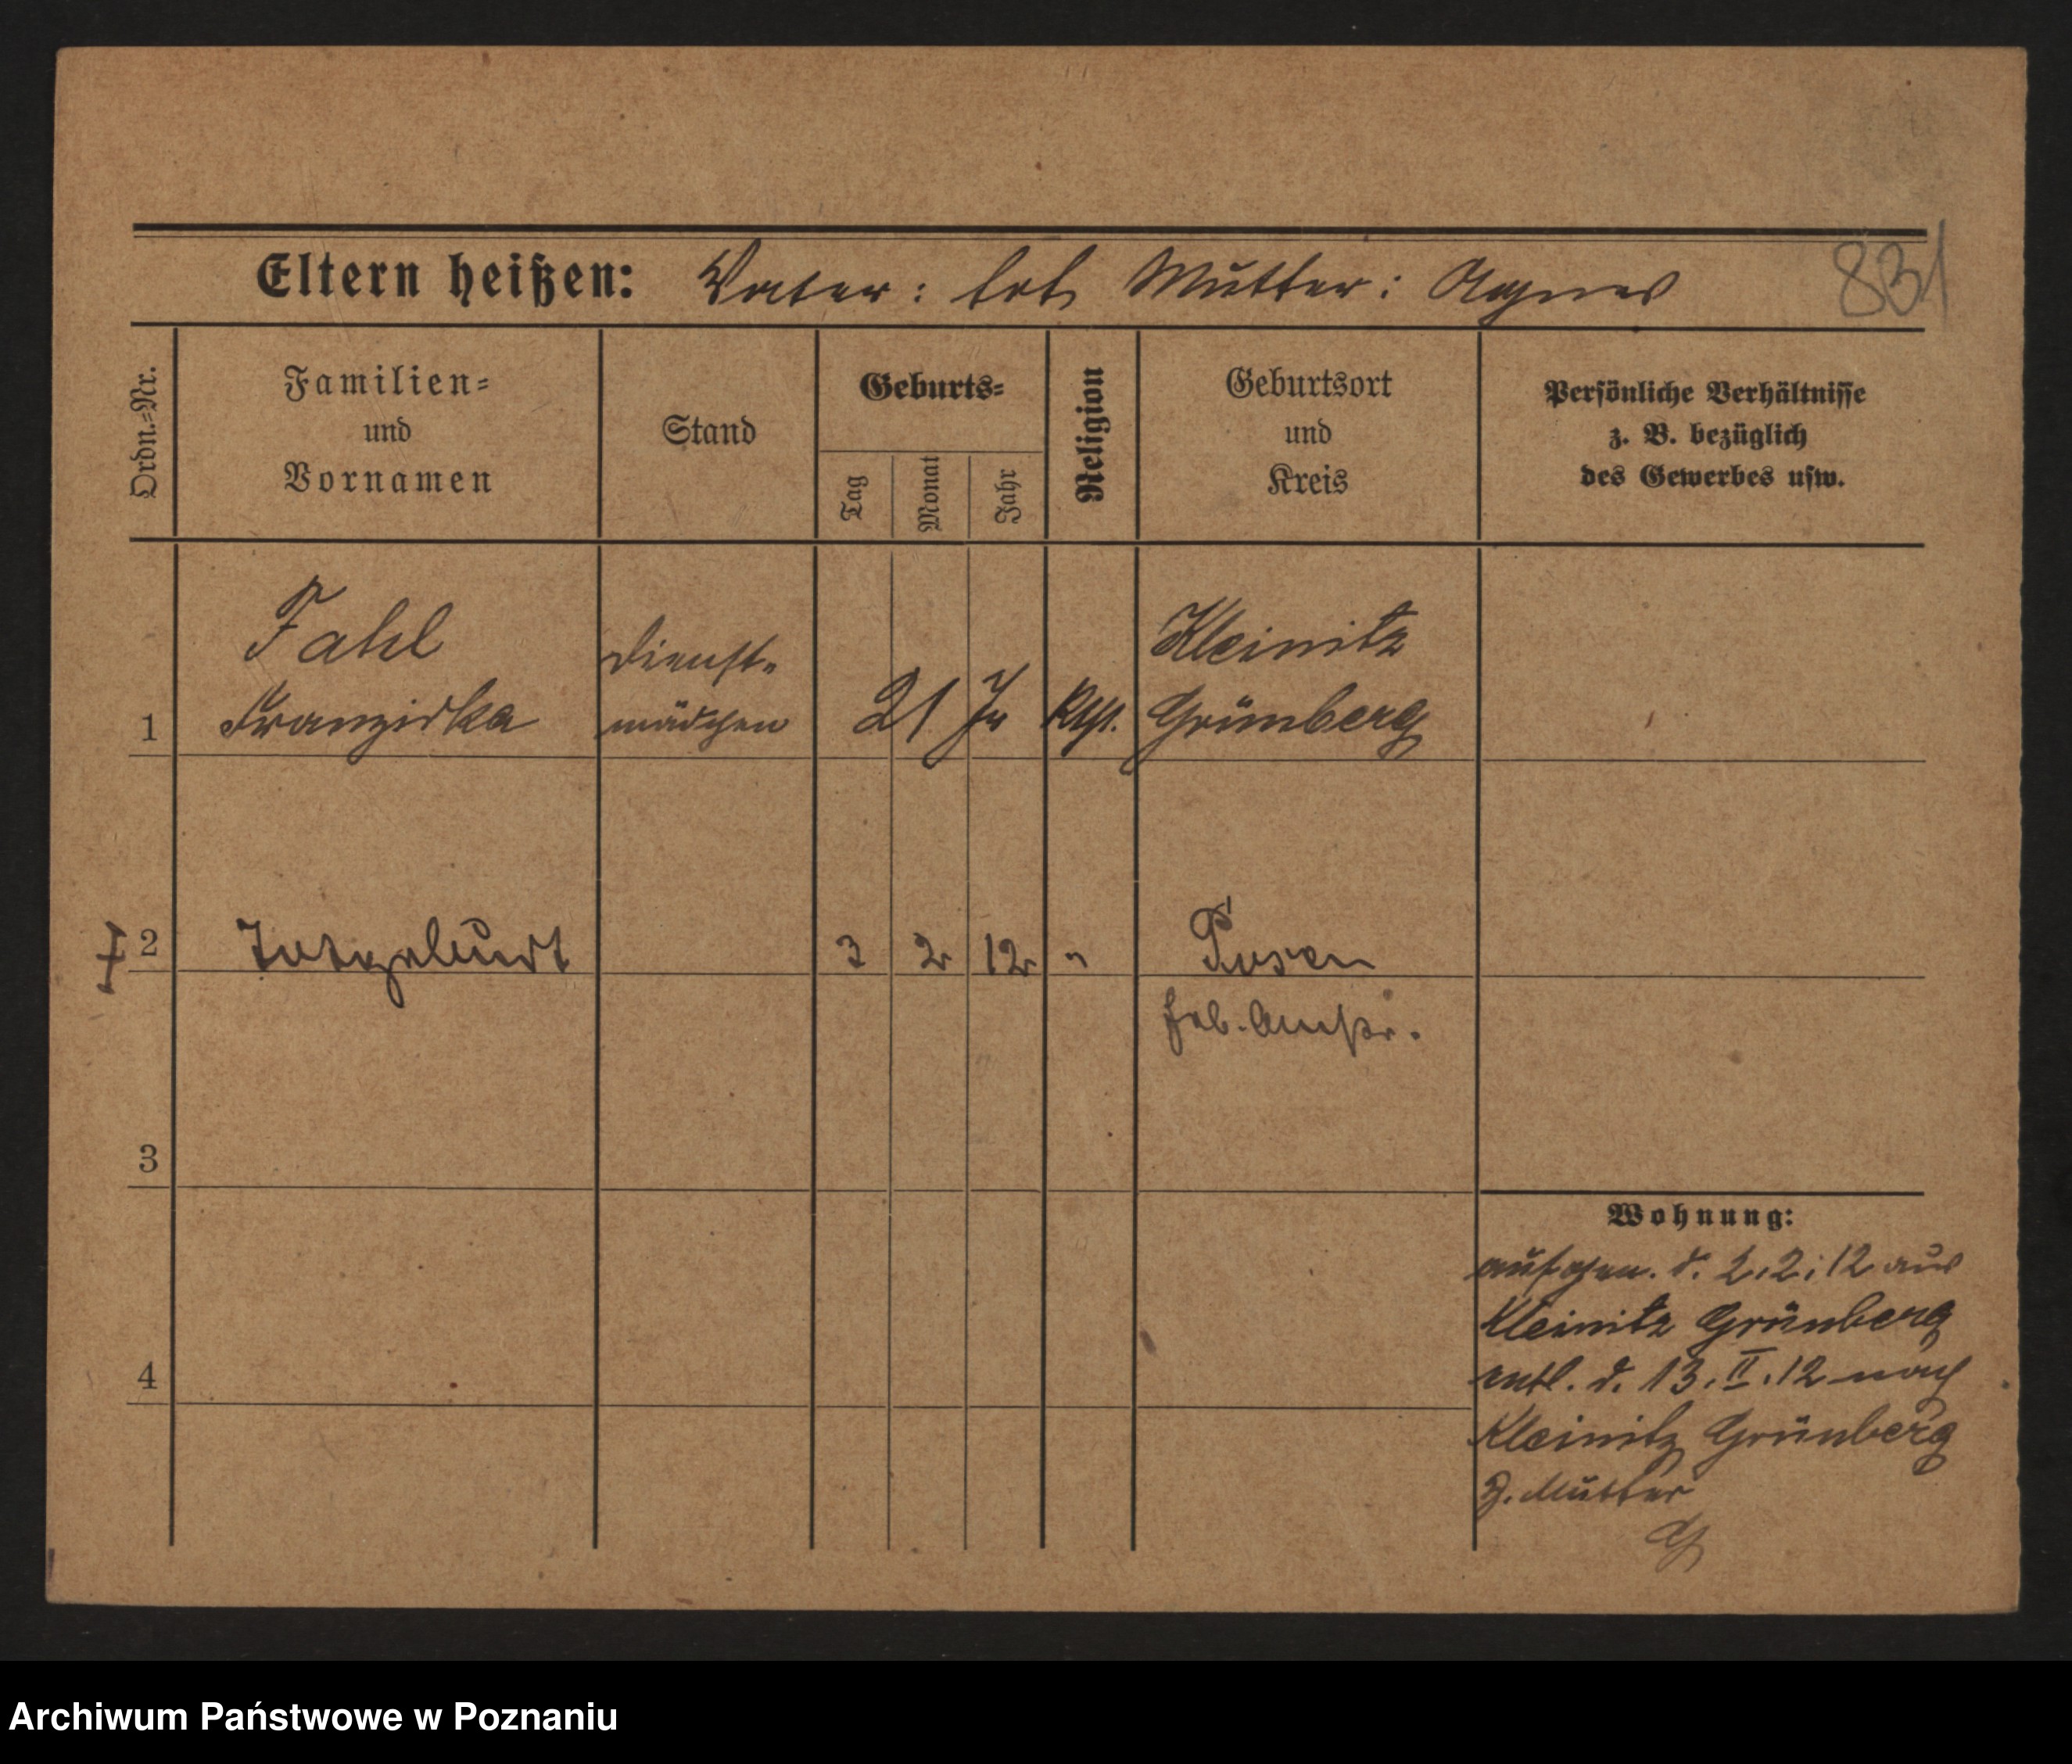 831
Eltern heißen: Vater: tot, Mutter: Agnes
Ordn.=Nr.
Familien=
und
Vornamen
Stand
Geburts=
Tag
Monat
Jahr
Religion
Geburtsort
und
Kreis
Persönliche Verhältnisse
z. B. bezüglich
des Gewerbes usw.
1
Fahl
Franziska
Dienst=
mädchen
21 Jr
Kth.
Kleinitz
Grünberg
2
Totgeburt
3
2
12
"
Posen
Heb. Anst.
3
4
Wohnung:
aufgen. d. 2.2.12 aus
Kleinitz Grünberg
entl. d. 13.II.12 nach
Kleinitz Grünberg
z. Mutter
Archiwum Państwowe w Poznaniu